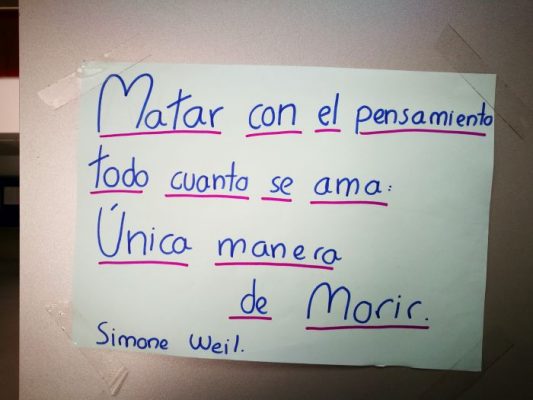 Matar con el pensamiento
todo cuanto se ama:
Única manera
de Morir.
Simone Weil.